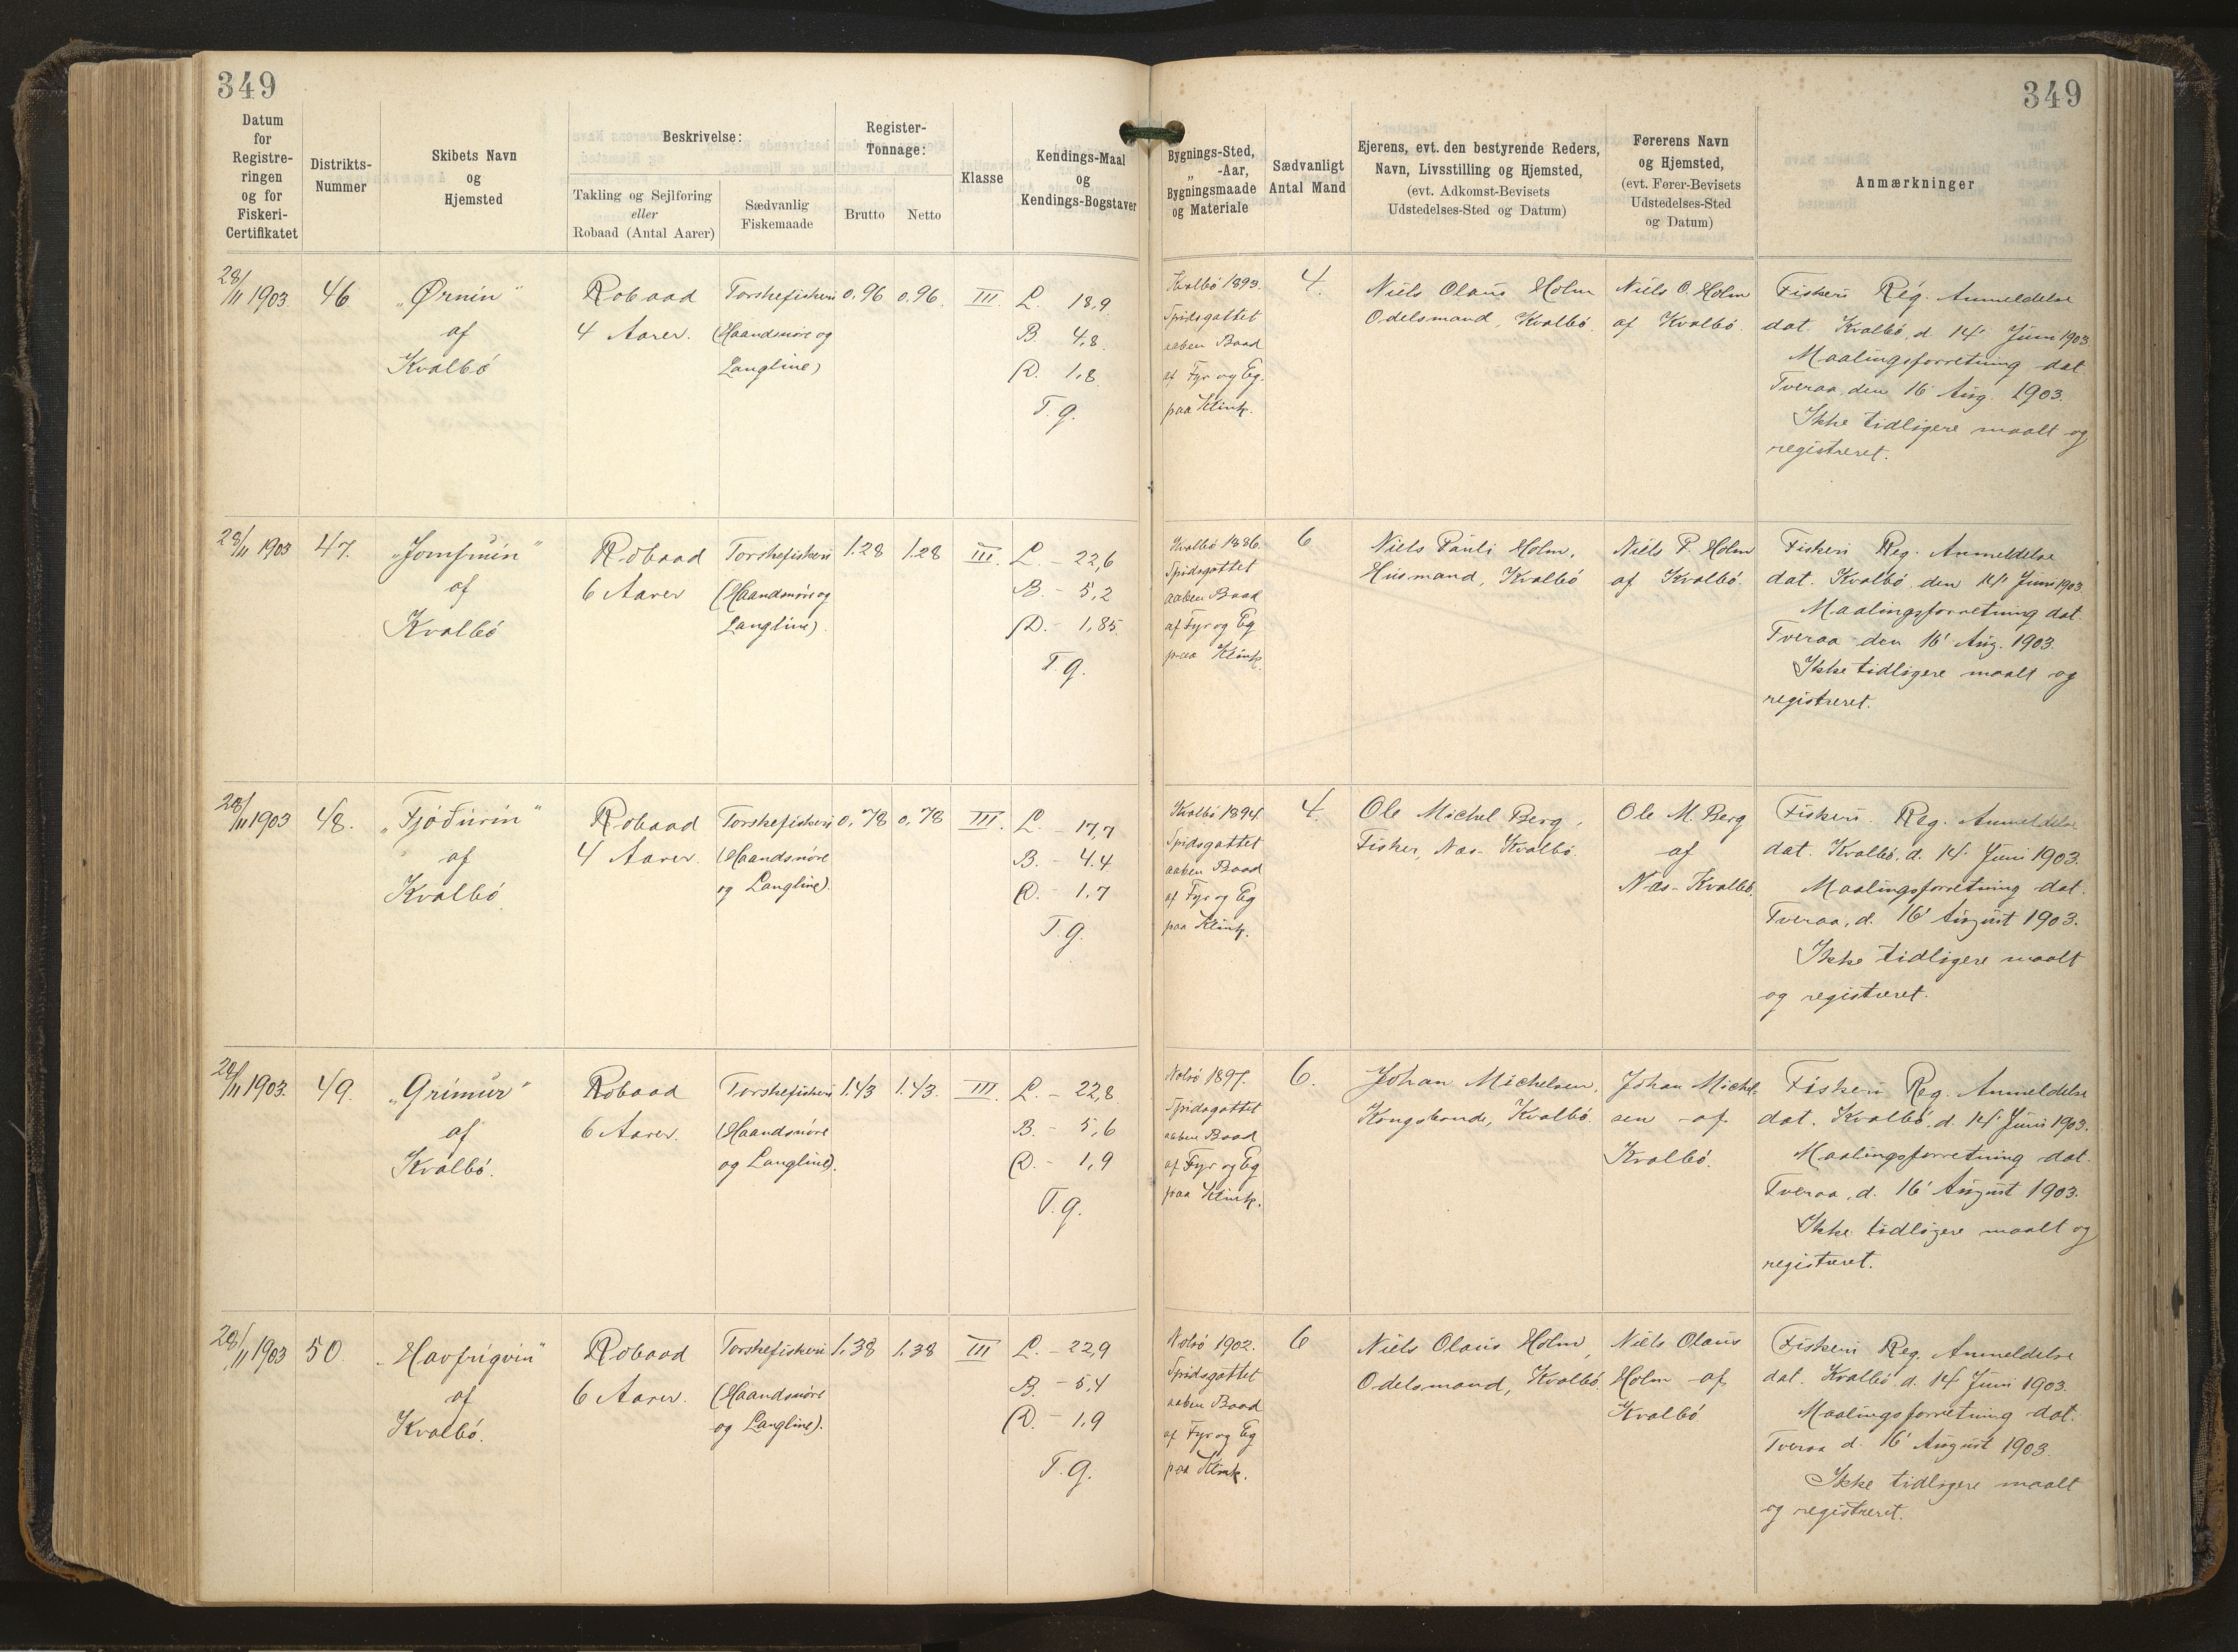 349
349
Datum
for
Registre-
ringen
og for
Fiskeri-
Certifikatet
Distrikts-
Nummer
Skibets Navn
og
Hjemsted
Beskrivelse:
Takling og Sejlføring
eller
Robaad (Antal Aarer)
Sædvanlig
Fiskemaade
Register-
Tonnage:
Brutto
Netto
Klasse
Kendings-Maal
og
Kendings-Bogstaver
Bygnings-Sted,
„ -Aar,
Bygningsmaade
og Materiale
Sædvanligt
Antal Mand
Ejerens, evt. den bestyrende Reders,
Navn, Livsstilling og Hjemsted,
(evt. Adkomst-Bevisets
Udstedelses-Sted og Datum)
Førerens Navn
og Hjemsted,
(evt. Fører-Bevisets
Udstedelses-Sted
og Datum)
Anmærkninger
28/11 1903.
46
„Ørnin“
af
Kvalbö
Robaad
4 Aarer.
Torskefiskeri
(Haandsnöre og
Langline)
0,96
0,96.
III.
L. 18,9
B. 4,8.
D. 1,8
T. g.
Kvalbö 1893.
Spidsgattet
aaben Baad
af Fyr og Eg.
paa Klink.
4.
Niels Olaus Holm
Odelsmand, Kvalbö.
Niels O. Holm
af Kvalbö.
Fiskeri Reg. Anmeldelse
dat. Kvalbö, d. 14' Juni 1903.
Maalingsforretning dat.
Tveraa, den 16' Aug. 1903.
Ikke tidligere maalt og
registreret.
28/11 1903
47.
„Jomfruin“
af
Kvalbö
Robaad
6 Aarer
Torskefiskeri
(Haandsnöre og
Langline).
1.28
1.28
III.
L. - 22,6
B. - 5,2
D. - 1,85.
T. g.
Kvalbö 1886.
Spidsgattet
aaben Baad
af Fyr og Eg
paa Klink.
6
Niels Pauli Holm,
Husmand, Kvalbö
Niels P. Holm
af Kvalbö.
Fiskeri Reg. Anmeldelse
dat. Kvalbö, den 14' Juni 1903.
Maalingsforretning dat.
Tveraa den 16' Aug. 1903.
Ikke tidligere maalt og
registreret.
28/11 1903
48.
„Fjóđurin“
af
Kvalbö
Robaad
4 Aarer.
Torskefiskeri
(Haandsnöre
og Langline).
0,78
0,78
III.
L. - 17,7
B. - 4.4
D. - 1,7
T. g.
Kvalbö 1894.
Spidsgattet
aaben Baad
af Fyr og Eg
paa Klink.
4.
Ole Michel Berg,
Fisker, Næs - Kvalbö.
Ole M. Berg
af
Næs - Kvalbö.
Fiskeri. Reg. Anmeldelse
dat. Kvalbö, d. 14. Juni 1903.
Maalingsforretning dat.
Tveraa, d. 16' August 1903.
Ikke tidligere maalt
og registreret.
28/11 1903.
49.
„Grimur“
af
Kvalbö.
Robaad
6 Aarer.
Torskefiskeri
(Haandsnöre
og Langline).
1.43
1.43.
III.
L. - 22,8
B. - 5,6
D. - 1,9
T. g.
Nolsö 1897.
Spidsgattet
aaben Baad
af Fyr og Eg
paa Klink.
6.
Johan Michelsen,
Kongsbonde, Kvalbö.
Johan Michel-
sen af
Kvalbö.
Fiskeri Reg. Anmeldelse
dat. Kvalbö, d. 14' Juni 1903.
Maalingsforretning dat.
Tveraa, d. 16' August 1903.
Ikke tidligere maalt og
registreret.
28/11 1903
50.
„Havfrúgvin“
af
Kvalbö.
Robaad
6 Aarer.
Torskefiskeri
(Haandsnöre
og Langline).
1,38
1.38
III
L. - 22,9
B. - 5,4
D. - 1,9
T. g.
Nolsö 1902.
Spidsgattet
aaben Baad
af Fyr og Eg
paa Klink.
6
Niels Olaus Holm,
Odelsmand, Kvalbö.
Niels Olaus
Holm af
Kvalbö
Fiskeri Reg. Anmeldelse
dat. Kvalbö, d. 14 Juni 1903.
Maalingsforretning dat.
Tveraa d. 16' August 1903.
Ikke tidligere maalt
og registreret.